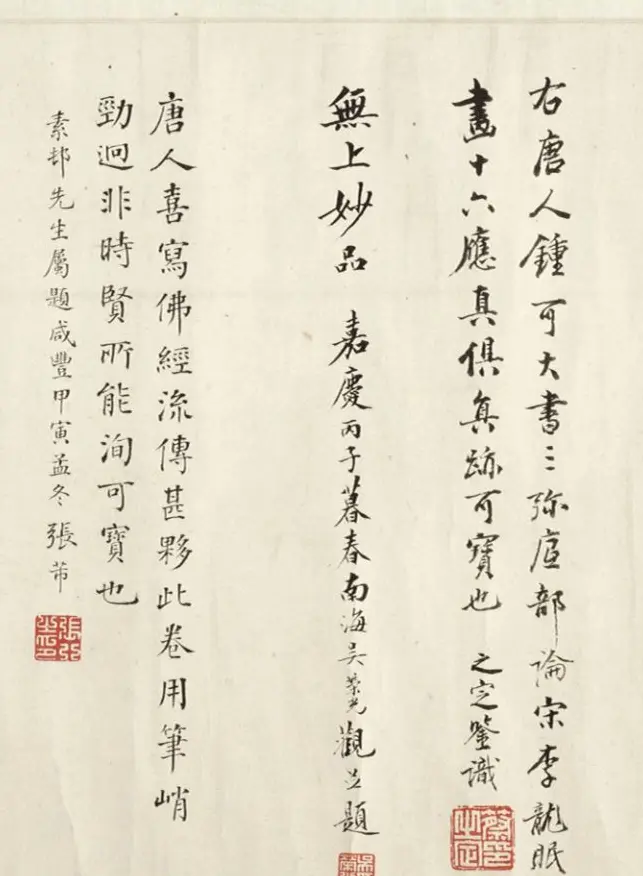 右唐人鍾可大書三弥底部論宋李龍眠
畫十六應真俱真跡可寶也 之定鑒識
蔡印之定
無上妙品 嘉慶丙子暮春南海吳榮光觀並題
唐人喜寫佛經流傳甚夥此卷用筆峭
勁逈非時賢所能洵可寶也
素邨先生屬題咸豐甲寅孟冬張芾